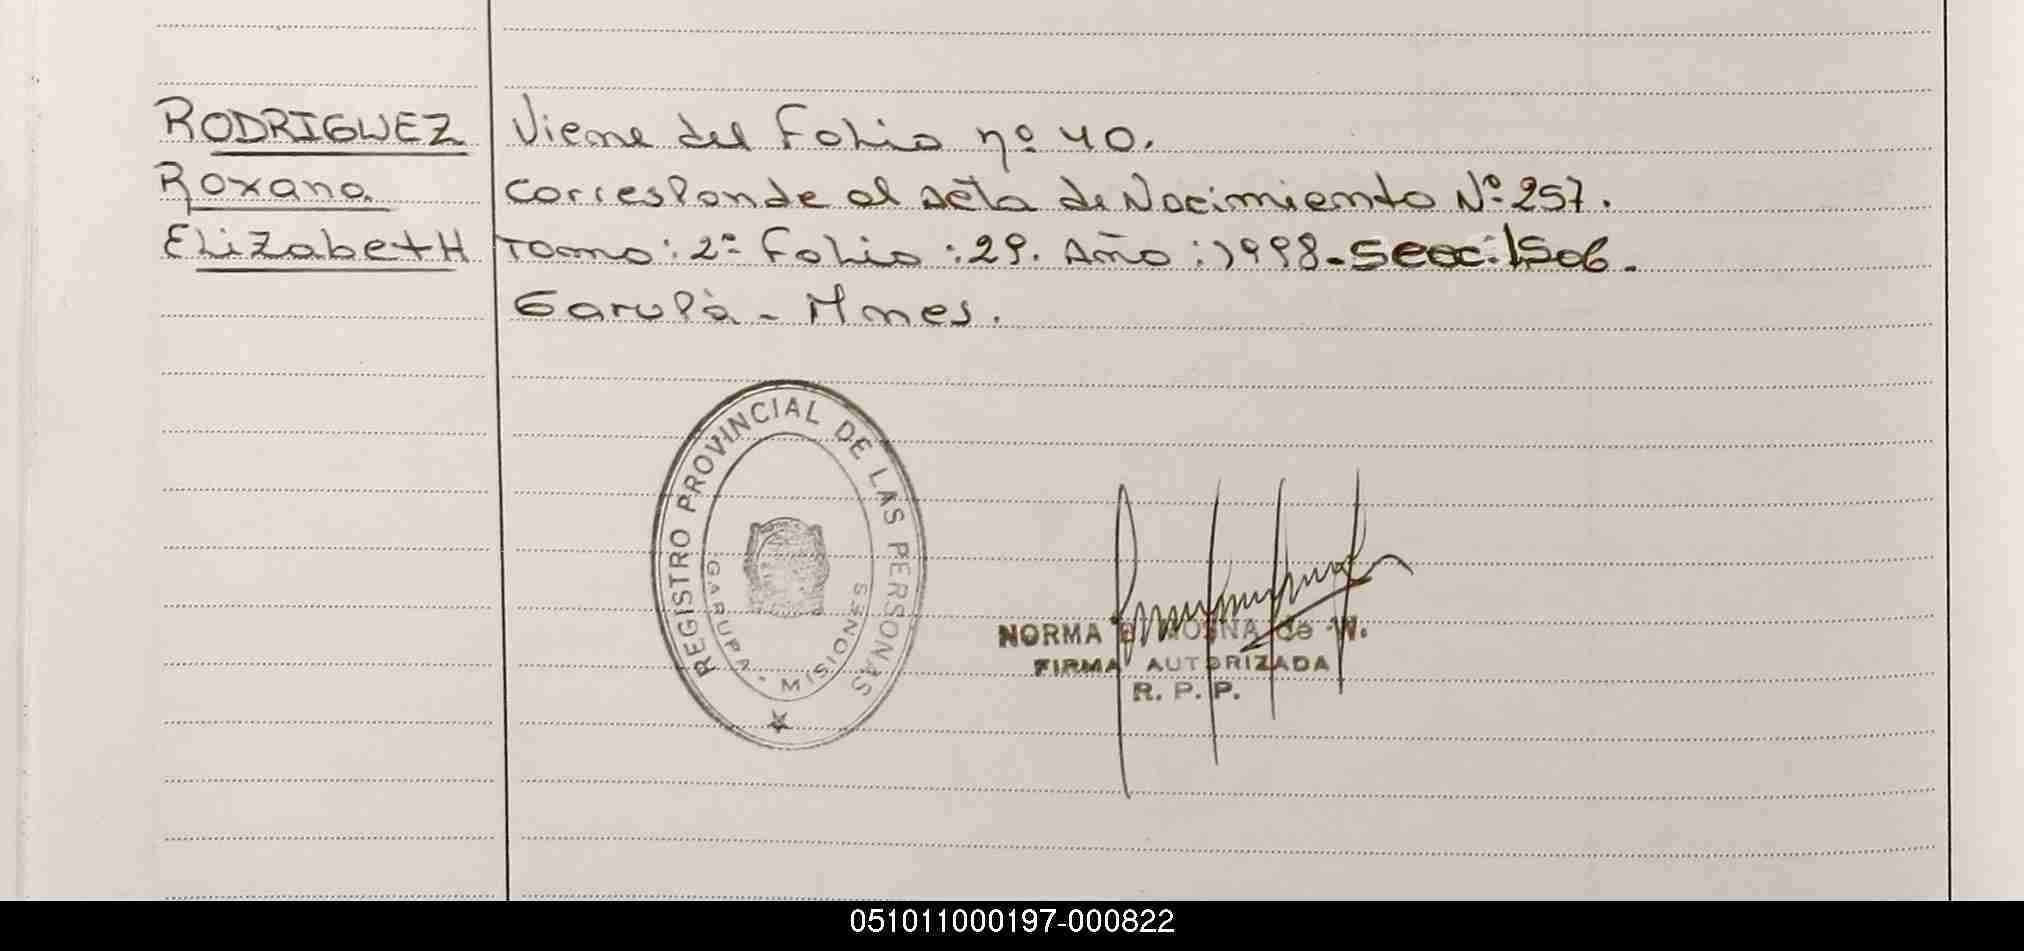 RODRIGUEZ
Roxana
ElizabetH
Viene del Folio nº 40.
Corresponde al acta de Nacimiento Nº 257.
Tomo: 2º Folio: 29. Año: 1998 - Secc: 1506.
Garupà - Mnes.
REGISTRO PROVINCIAL DE LAS PERSONAS
GARUPA - MISIONES
NORMA de W.
FIRMA AUTORIZADA
R. P. P.
051011000197-000822